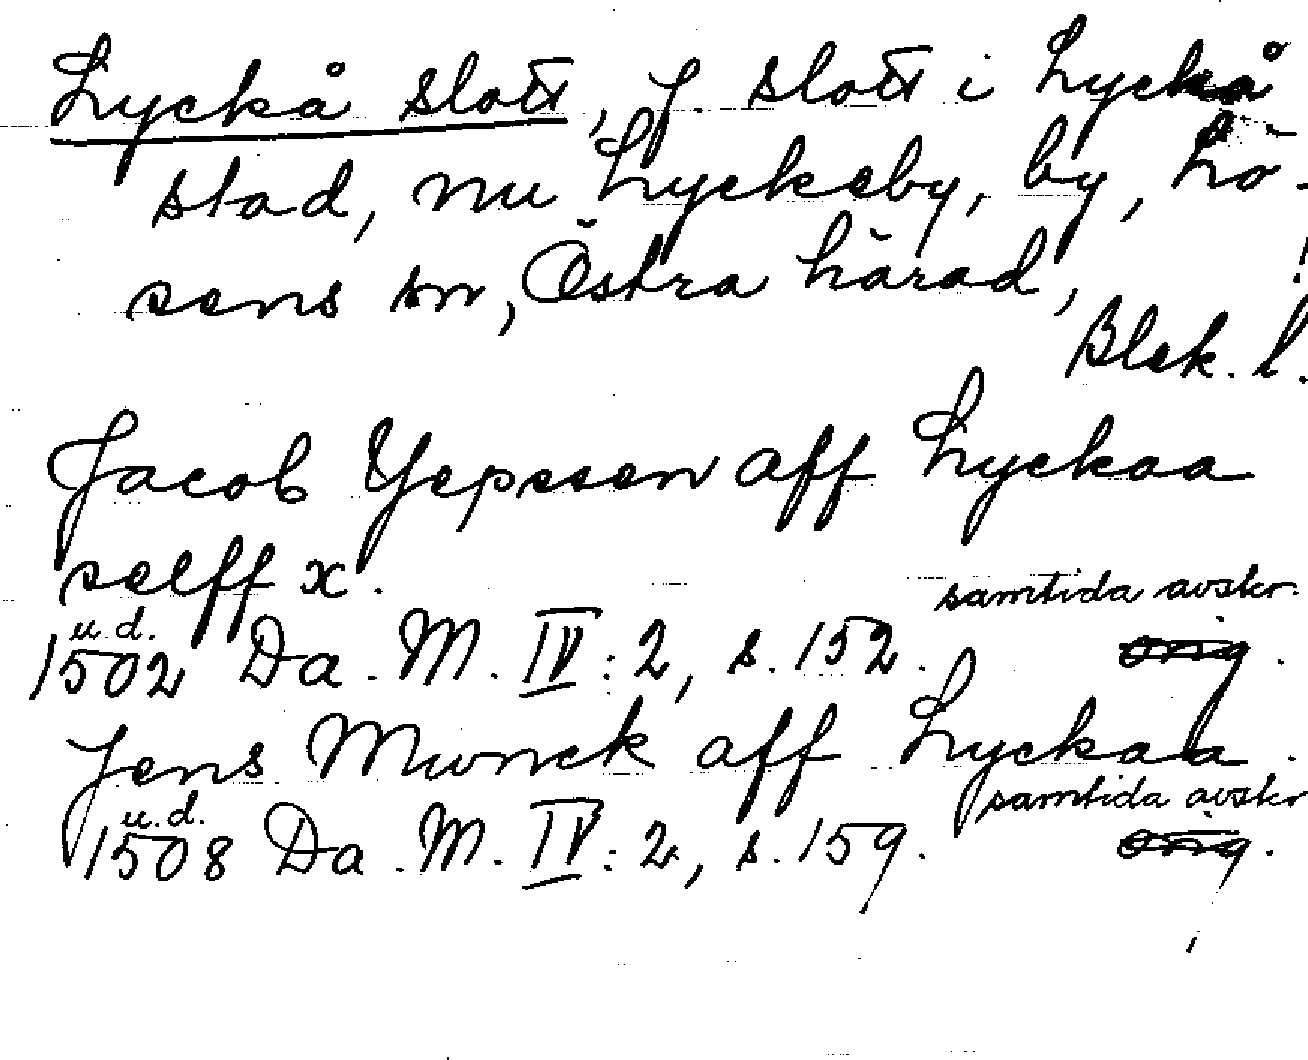 Lyckå slott, f. slott i Lyckå
stad, nu Lyckeby, by, Lö-
sens sn, Östra härad,
Blek. l.
Jacob Yepssen aff Lyckaa
selff x.
samtida avskr.
u.d.
1502 Da. M. IV: 2, s. 152. orig.
Jens Mwnck aff Lyckaa.
samtida avskr
u.d.
1508 Da. M. IV: 2, s. 159. orig.